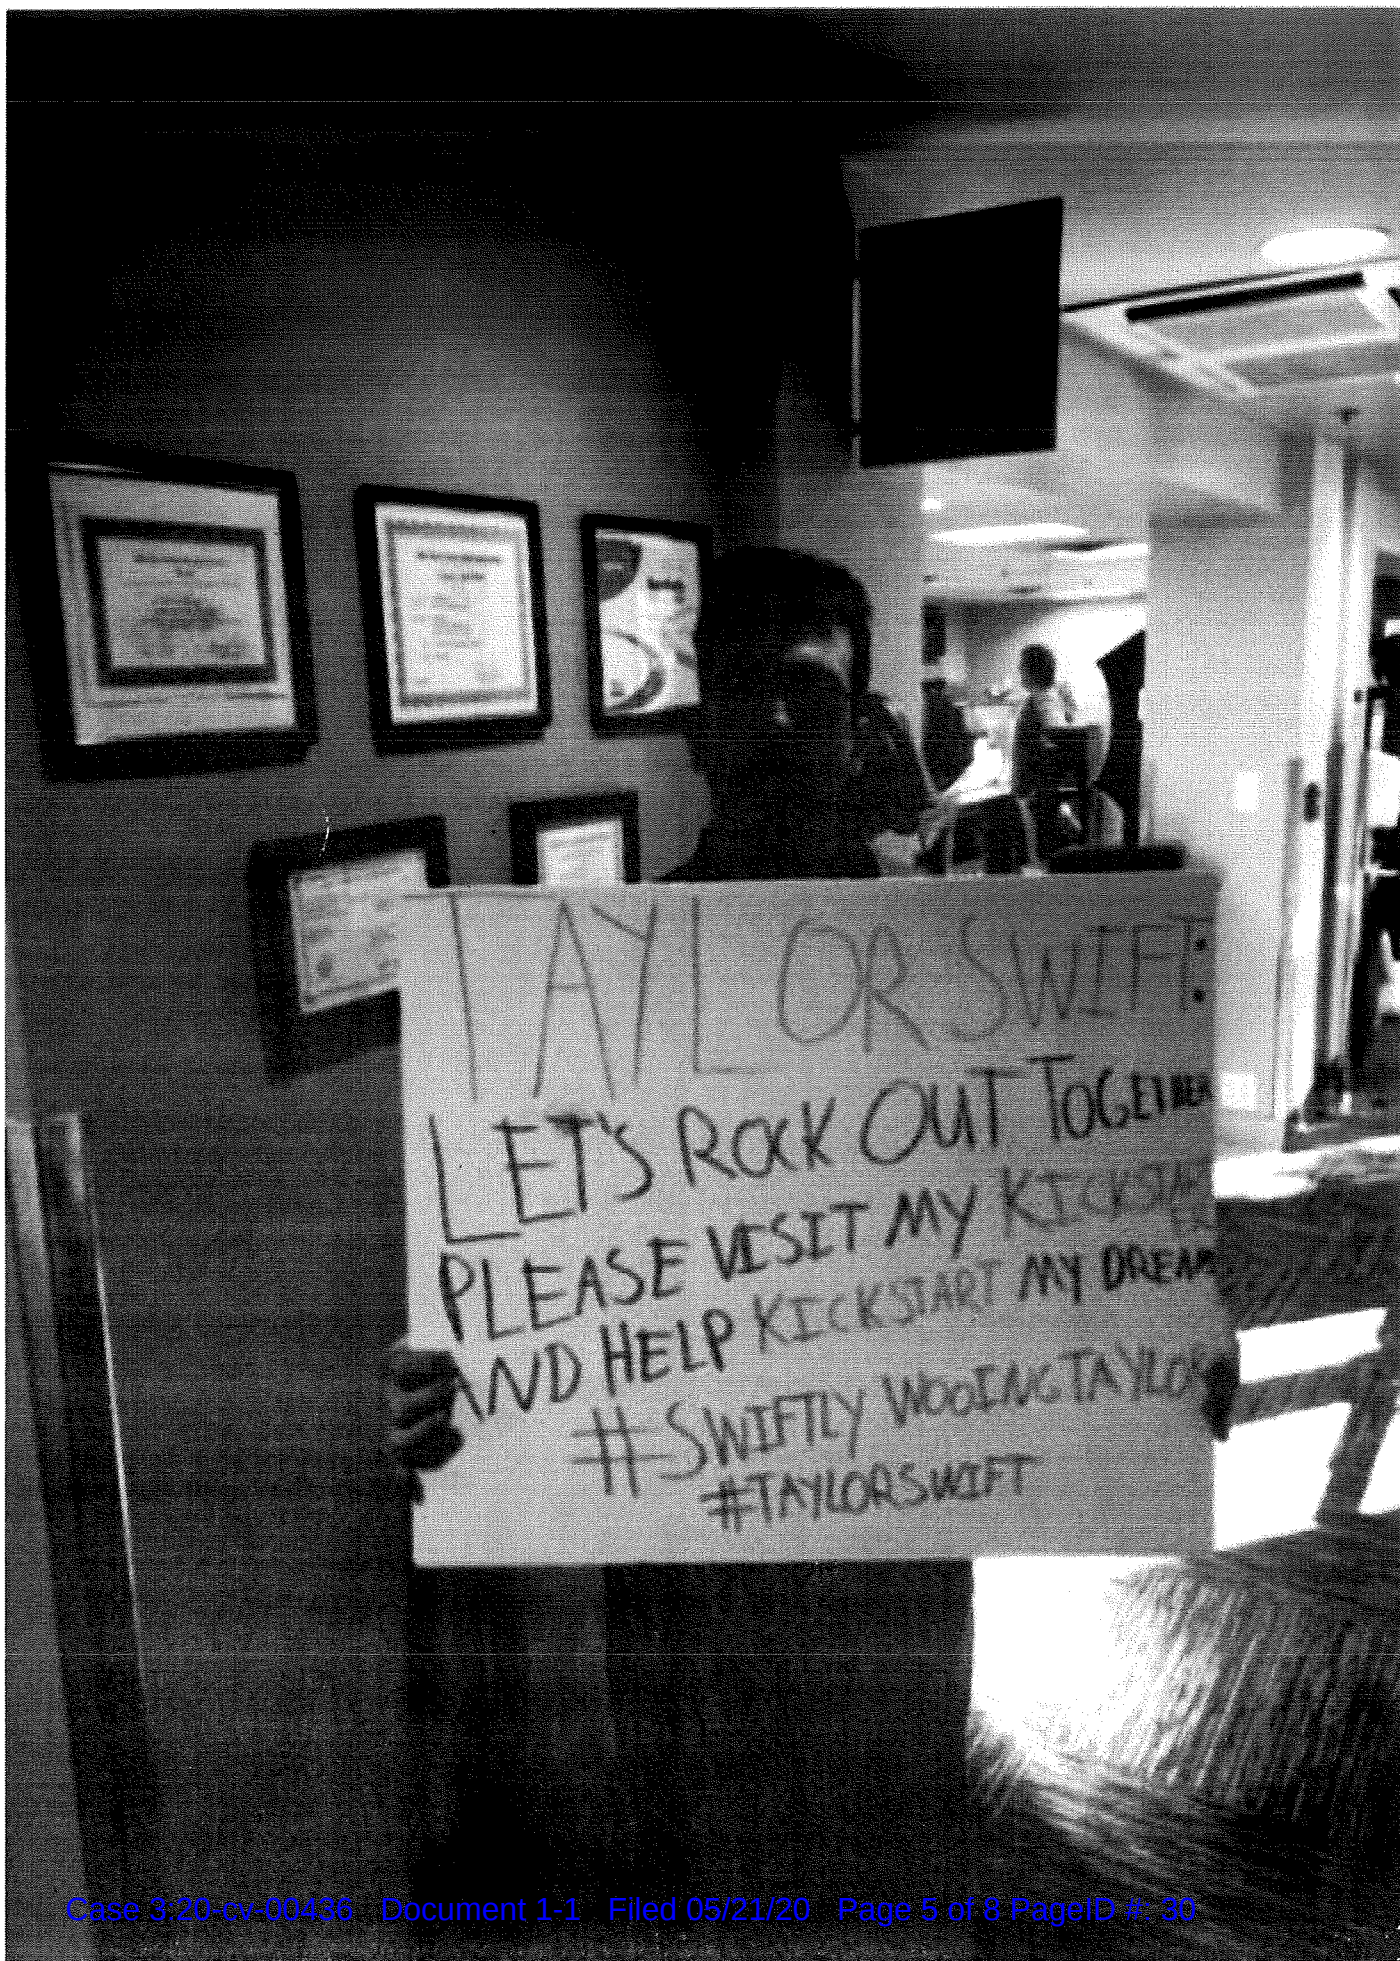 TAYLOR SWIFT:
LET'S ROCK OUT TOGETHER
PLEASE VISIT MY
AND HELP KICKSTART MY DREAM
#SWIFTLY WOOINGTAYLOR
#TAYLORSWIFT
Case 3:20-cv-00436 Document 1-1 Filed 05/21/20 Page 5 of 8 PageID #: 30